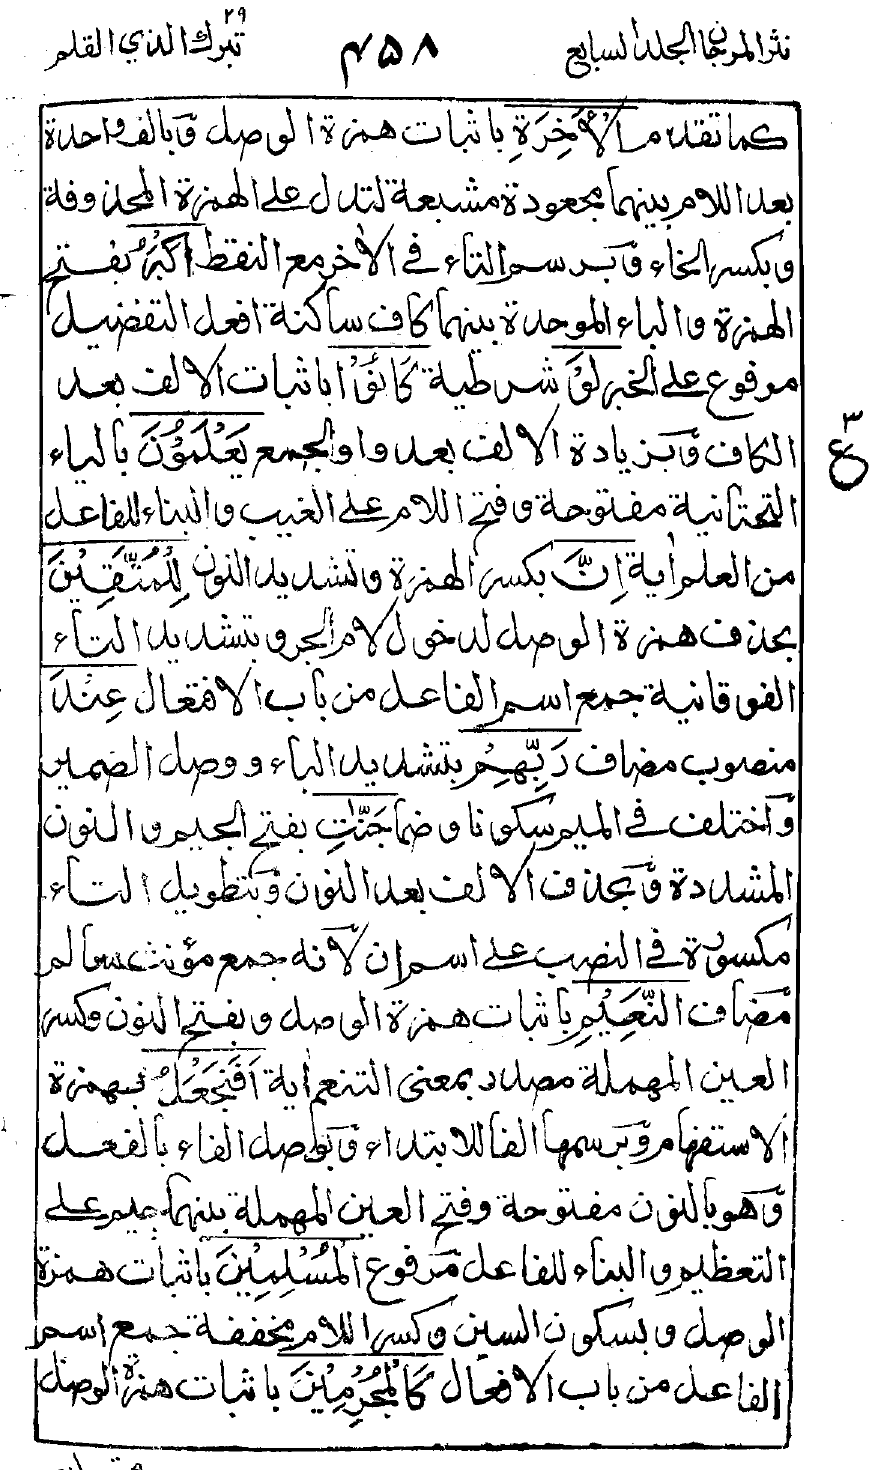 نثر المرجان الجلد السابع
۴۵۸
تبرك الذي ۲۹ القلم
كما تقدم الْأٰخِرَةِ باثبات همزة الوصل وبالف واحدة
بعد اللام بينهما مجعودة مشبعة لتدل على الهمزة المحذوفة
وبكسر الخاء وبرسم التاء في الاخر مع النقط اَكْبَرُ بفتح
الهمزة والباء الموحدة بينهما كاف ساكنة افعل التفضيل
مرفوع على الخبر لَوْ شرطية كَانُوْا باثبات الالف بعد
الكاف وبزيادة الالف بعد واو الجمع يَعْلَمُوْنَ بالياء
التحتانية مفتوحة وفتح اللام على الغيب والبناء للفاعل
من العلم اٰية اِنَّ بكسر الهمزة وتشديد النون لِلْمُتَّقِيْنَ
بحذف همزة الوصل لدخول لام الجر وبتشديد التاء
الفوقانية جمع اسم الفاعل من باب الافتعال عِنْدَ
منصوب مضاف رَبِّهِمْ بتشديد الباء ووصل الضمير
واختلف في الميم سكونا وضما جَنّٰتِ بفتح الجيم والنون
المشددة وبحذف الالف بعد النون وبتطويل التاء
مكسورة في النصب على اسم ان لانه جمع مؤنث سالم
مضاف النَّعِيْمِ باثبات همزة الوصل وبفتح النون وكسر
العين المهملة مصدر بمعنى التنعم اٰية اَفَنَجْعَلُ بهمزة
الاستفهام وبرسمها الفا للابتداء وبوصل الفاء بالفعل
وهو بالنون مفتوحة وفتح العين المهملة بينهما جيم على
التعظيم والبناء للفاعل مرفوع الْمُسْلِمِيْنَ باثبات همزة
الوصل وبسكون السين وكسر اللام مخففة جمع اسم
الفاعل من باب الافعال كَالْمُجْرِمِيْنَ باثبات همزة الوصل
۳
ع